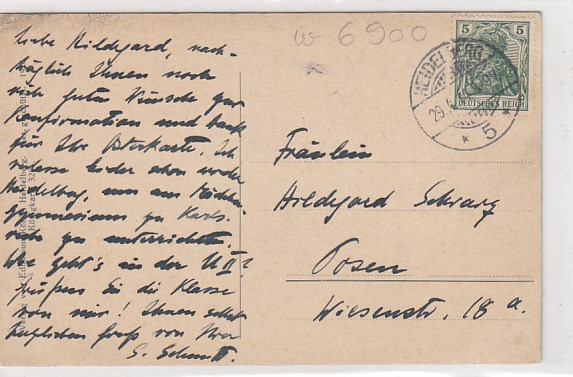 w 6900
Liebe Hildegard, nach-
träglich Ihnen noch
viele gute Wünsche zur
Konfirmation und Dank
für Ihre Osterkarte. Ich
verlasse leider schon wieder
Heidelberg, um am Mädchen
gymnasium zu Karls-
ruhe zu unterrichten.
Wie geht's in der U II?
Grüßen Sie die Klasse
von mir! Ihnen selbst
herzlichen Gruß von Ihrer
HEIDELBERG
29.
* 5
5 5
DEUTSCHES REICH
Fräulein
Hildegard Schwarz
Posen
Wiesenstr. 18 a.
Heidelberg